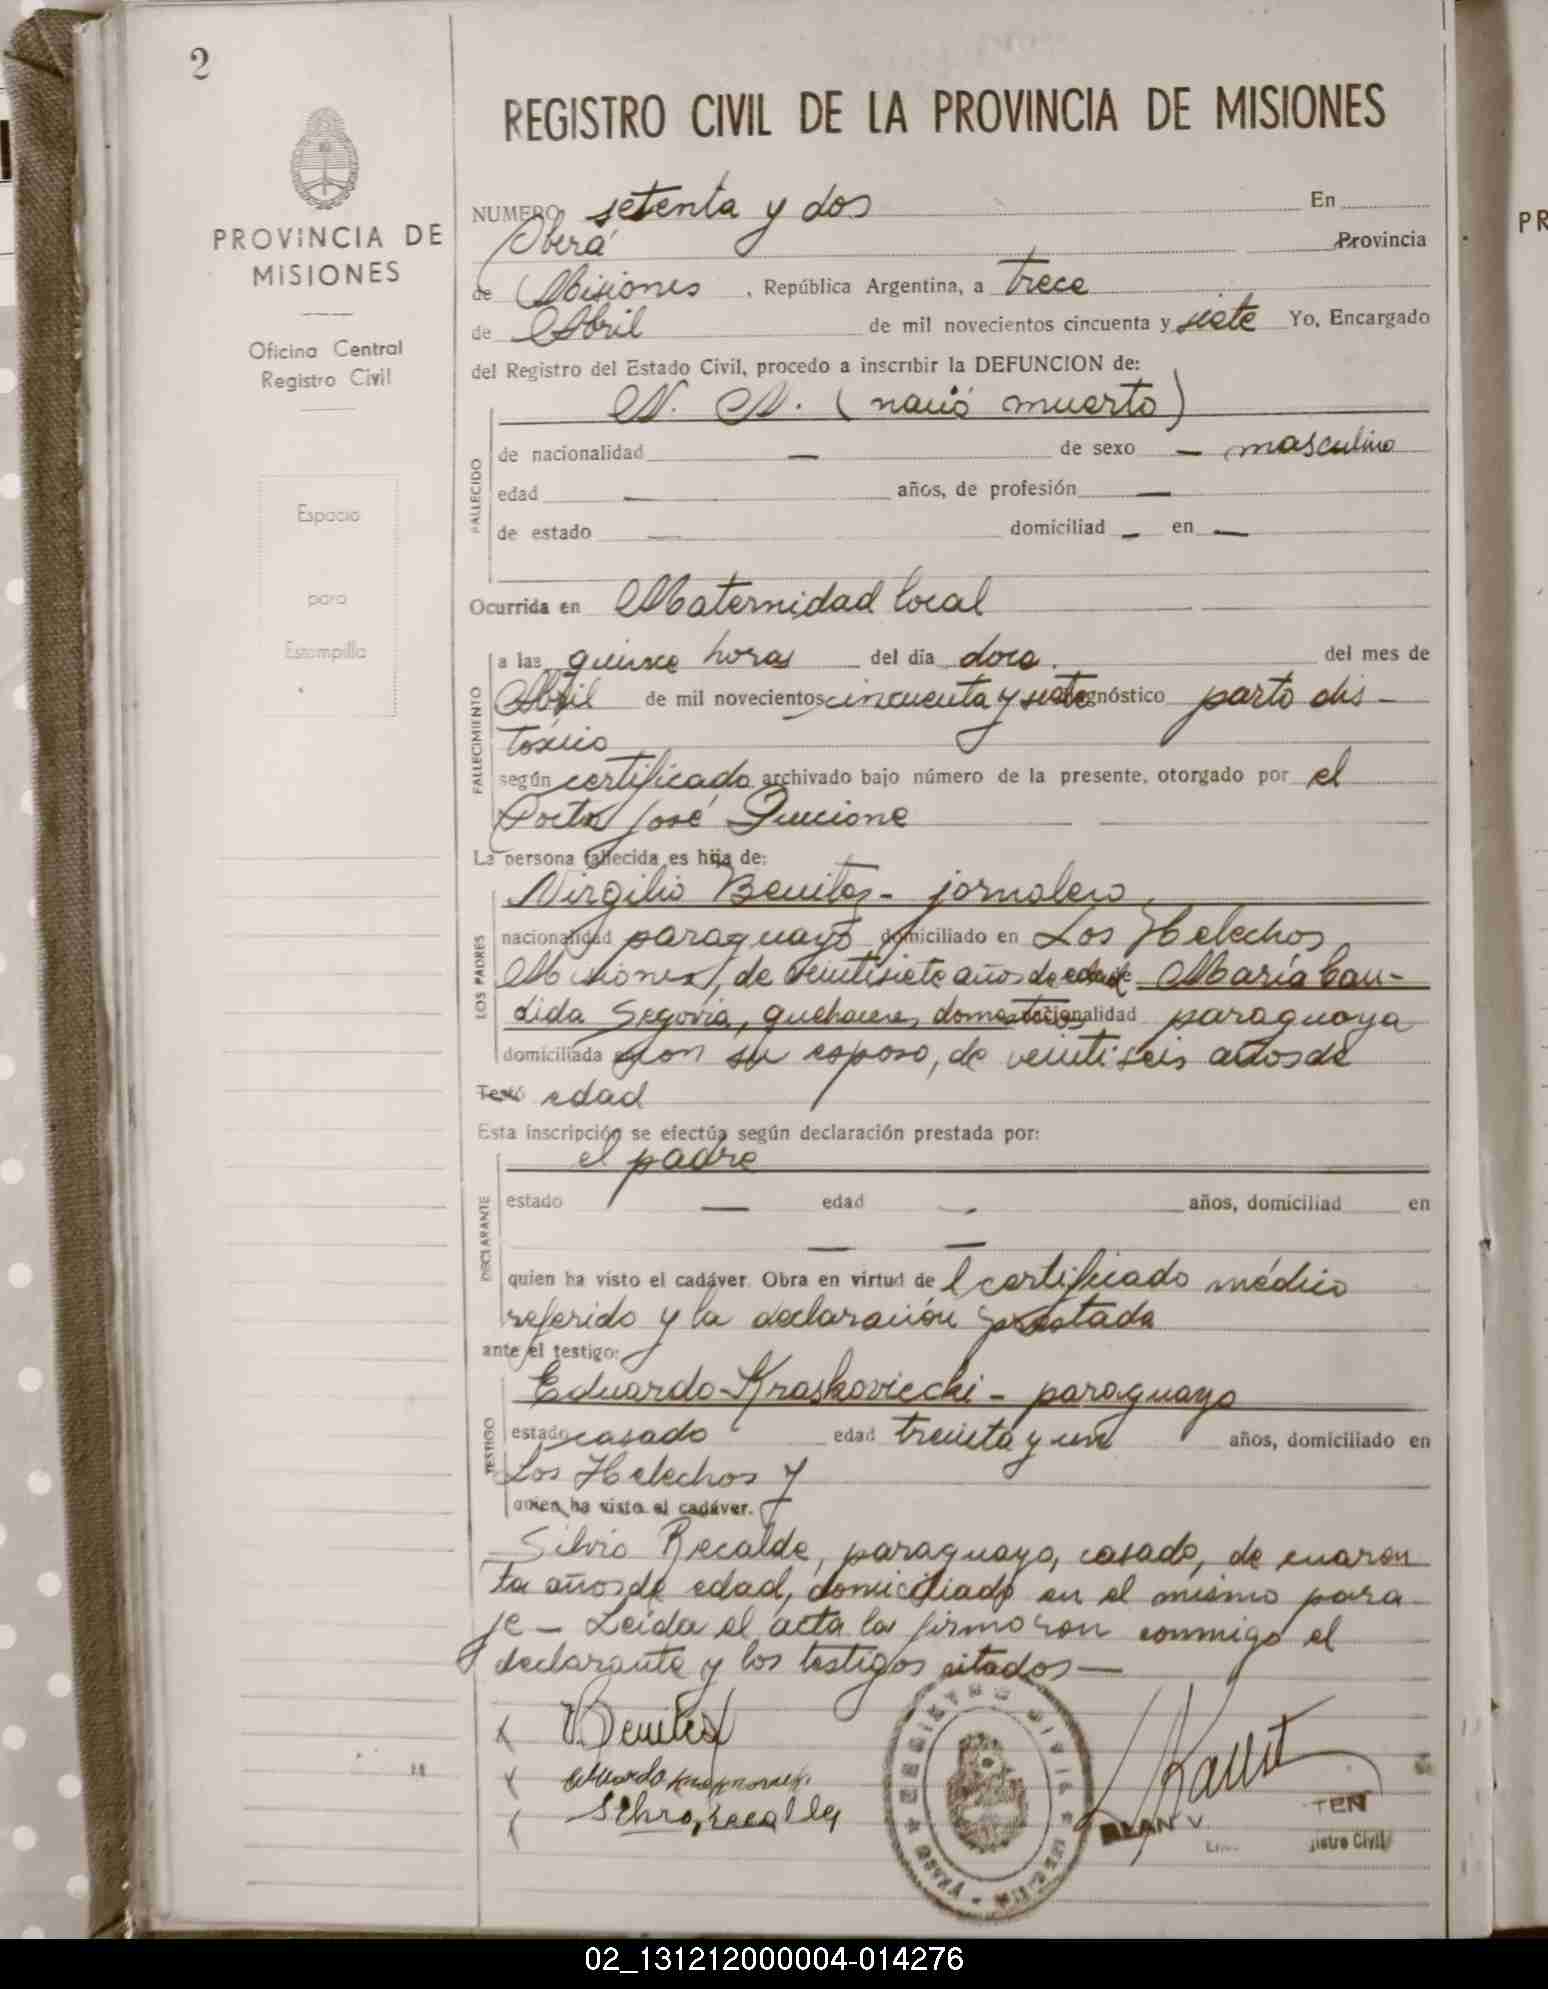 2
REGISTRO CIVIL DE LA PROVINCIA DE MISIONES
PROVINCIA DE
MISIONES
Oficina Central
Registro Civil
Espacio
para
Estampilla
NUMERO setenta y dos En
Oberá Provincia
de Misiones, República Argentina, a trece
de Abril de mil novecientos cincuenta y siete Yo, Encargado
del Registro del Estado Civil, procedo a inscribir la DEFUNCION de:
N. N. (nació muerto)
FALLECIDO
de nacionalidad — de sexo — masculino
edad — años, de profesión —
de estado — domiciliad — en —
Ocurrida en Maternidad local
FALLECIMIENTO
a las quince horas del día doce. del mes de
Abril de mil novecientos cincuenta y siete diagnóstico parto dis-
tóxico
según certificado archivado bajo número de la presente, otorgado por el
Doctor José
La persona fallecida es hija de:
LOS PADRES
Virgilio Benitez - jornalero,
nacionalidad paraguayo domiciliado en Los Helechos
Misiones, de veintisiete años de edad de María Can-
dida Segovia, quehaceres domesticos nacionalidad paraguaya
domiciliada con su esposo, de veintiseis años de
edad
Esta inscripción se efectúa según declaración prestada por:
el padre
DECLARANTE
estado — edad años, domiciliad en
— —
quien ha visto el cadáver. Obra en virtud del certificado médico
referido y la declaración prestada
ante el testigo:
TESTIGO
Eduardo Kraskoviecki - paraguayo
estado casado edad treinta y un años, domiciliado en
Los Helechos y
quien ha visto el cadáver.
Silvio Recalde, paraguayo, casado, de cuaren
ta años de edad, domiciliado en el mismo para
je — Leida el acta la firmaron conmigo el
declarante y los testigos citados —
V. Benitez
REGISTRO CIVIL
TEN
istro Civil
02_131212000004-014276